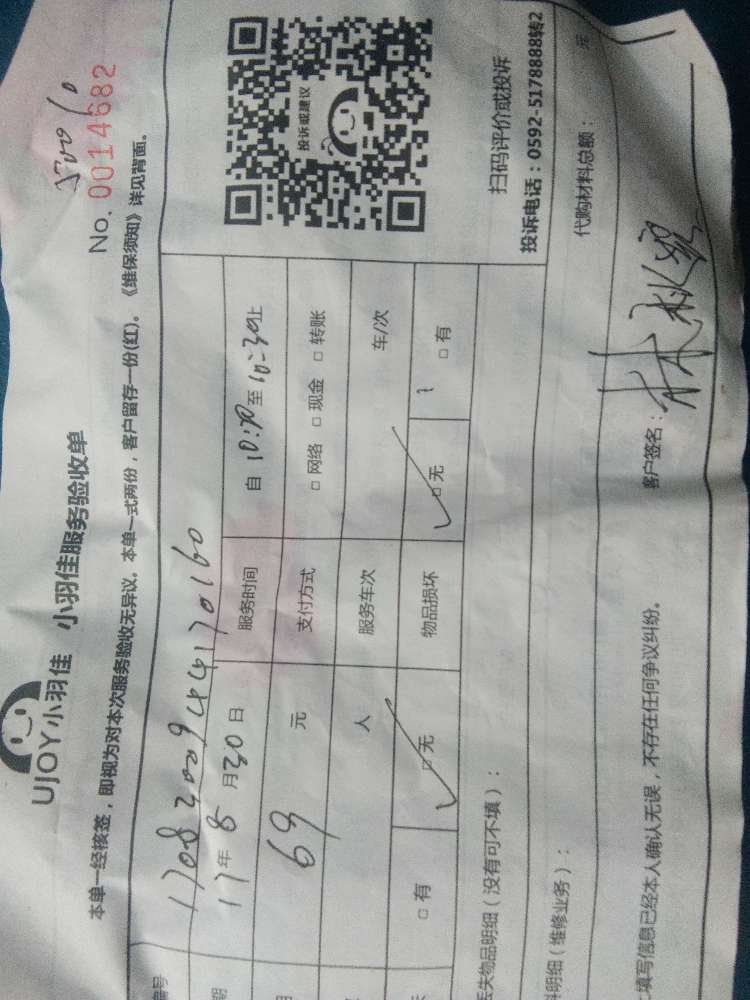 UJOY小羽佳 小羽佳服务验收单
No. 0014682
本单一经核签，即视为对本次服务验收无异议。本单一式两份，客户留存一份(红)。《维保须知》详见背面。
编号
期 17年 8月 30日 服务时间 自 10:00 至 10:30 止
69 元 支付方式 □ 网络 □ 现金 □ 转账
人 服务车次 车/次
□ 有 □ 无 物品损坏 □ 无 □ 有
投诉或建议
扫码评价或投诉
投诉电话：0592-5178888转2
丢失物品明细（没有可不填）：
料明细（维修业务）：
代购材料总额： 元
填写信息已经本人确认无误，不存在任何争议纠纷。
客户签名：